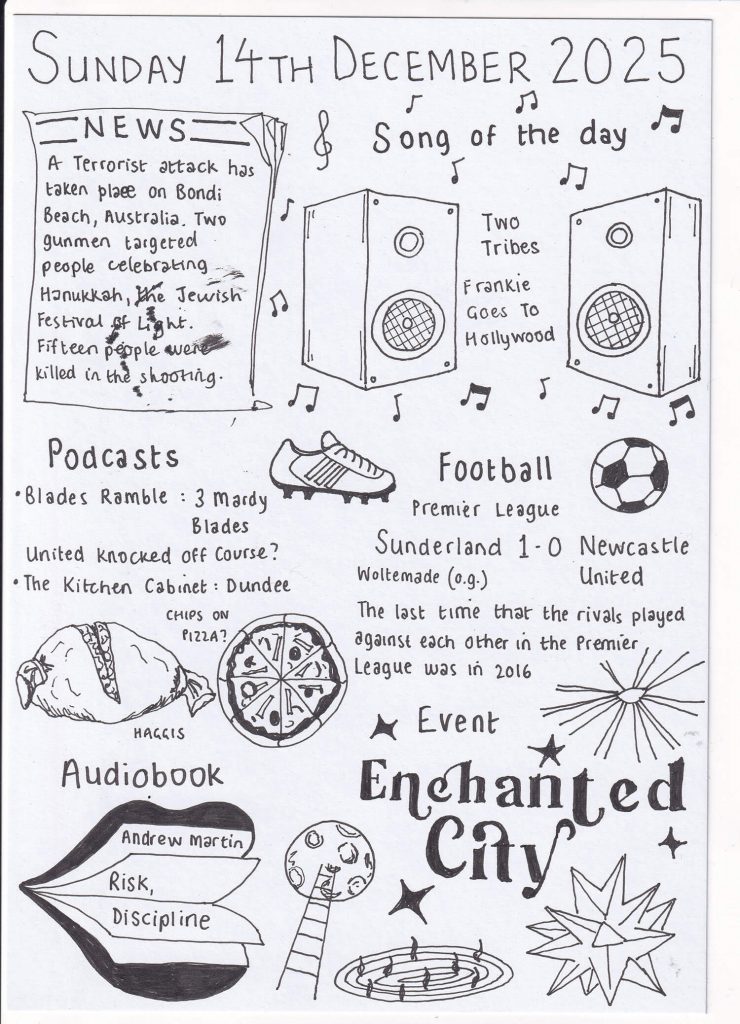 SUNDAY 14TH DECEMBER 2025
NEWS
A Terrorist attack has
taken place on Bondi
Beach, Australia. Two
gunmen targeted
people celebrating
Hanukkah, the Jewish
Festival of Light.
Fifteen people were
killed in the shooting.
Song of the day
Two
Tribes
Frankie
Goes To
Hollywood
Podcasts
• Blades Ramble : 3 Mardy
Blades
United knocked off Course?
• The Kitchen Cabinet : Dundee
CHIPS ON
PIZZA?
HAGGIS
Football
Premier League
Sunderland 1-0 Newcastle
United
Woltemade (o.g.)
The last time that the rivals played
against each other in the Premier
League was in 2016
Audiobook
Andrew Martin
Risk,
Discipline
Event
Enchanted
City